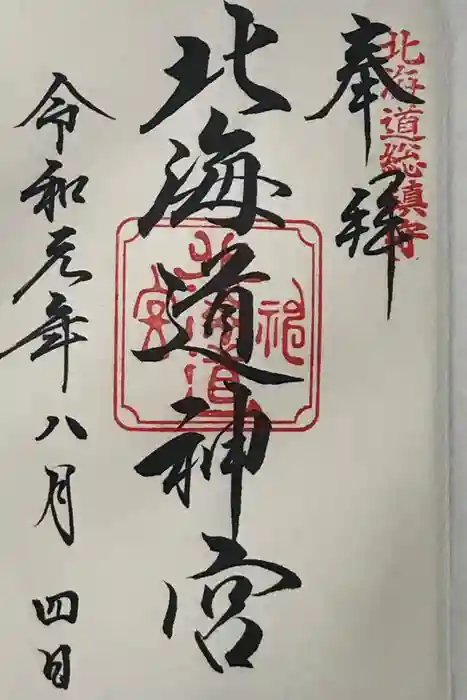 奉拝
北海道総鎮守
北海道神宮
令和元年八月四日